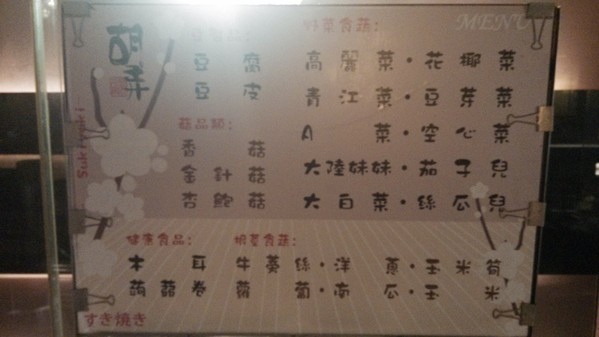 MENU
胡弄
Sukiyaki
豆腐
豆皮
菇品類：
香菇
金針菇
杏鮑菇
葉菜食蔬：
高麗菜・花椰菜
青江菜・豆芽菜
A菜・空心菜
大陸妹妹・茄子兒
大白菜・絲瓜兒
健康食品：
木耳
蒟蒻卷
根莖食蔬：
牛蒡絲・洋蔥・玉米筍
蘿蔔・南瓜・玉米
すき焼き